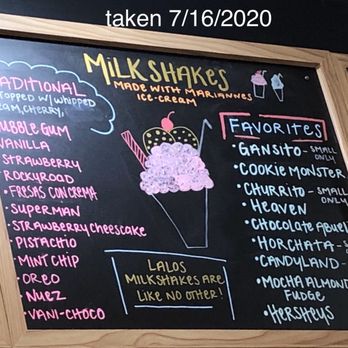 taken 7/16/2020
MILKSHAKES
MADE WITH MARIANNES
ICE-CREAM
TOPPED W/ WHIPPED
CHERRY,
BUBBLEGUM
VANILLA
STRAWBERRY
ROCKYROAD
FRESAS CON CREMA
SUPERMAN
STRAWBERRY CHEESCAKE
PISTACHIO
MINT CHIP
OREO
NUEZ
VANI-CHOCO
LALOS
MILKSHAKES ARE
LIKE NO OTHER!
FAVORITES
GANSITO - SMALL ONLY
COOKIE MONSTER
CHURRITO - SMALL ONLY
HEAVEN
CHOCOLATE
HORCHATA -
CANDYLAND -
MOCHA ALMOND
FUDGE
HERSHEYS